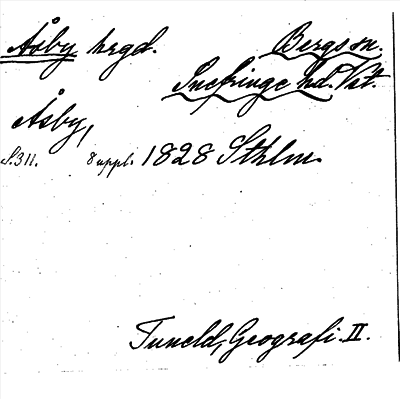 Åsby hrgd. Bergs sn.
Snefringe hd. Vstl.
Åsby,
S.311. 8 uppl. 1828 Sthlm.
Tuneld, Geografi. II.